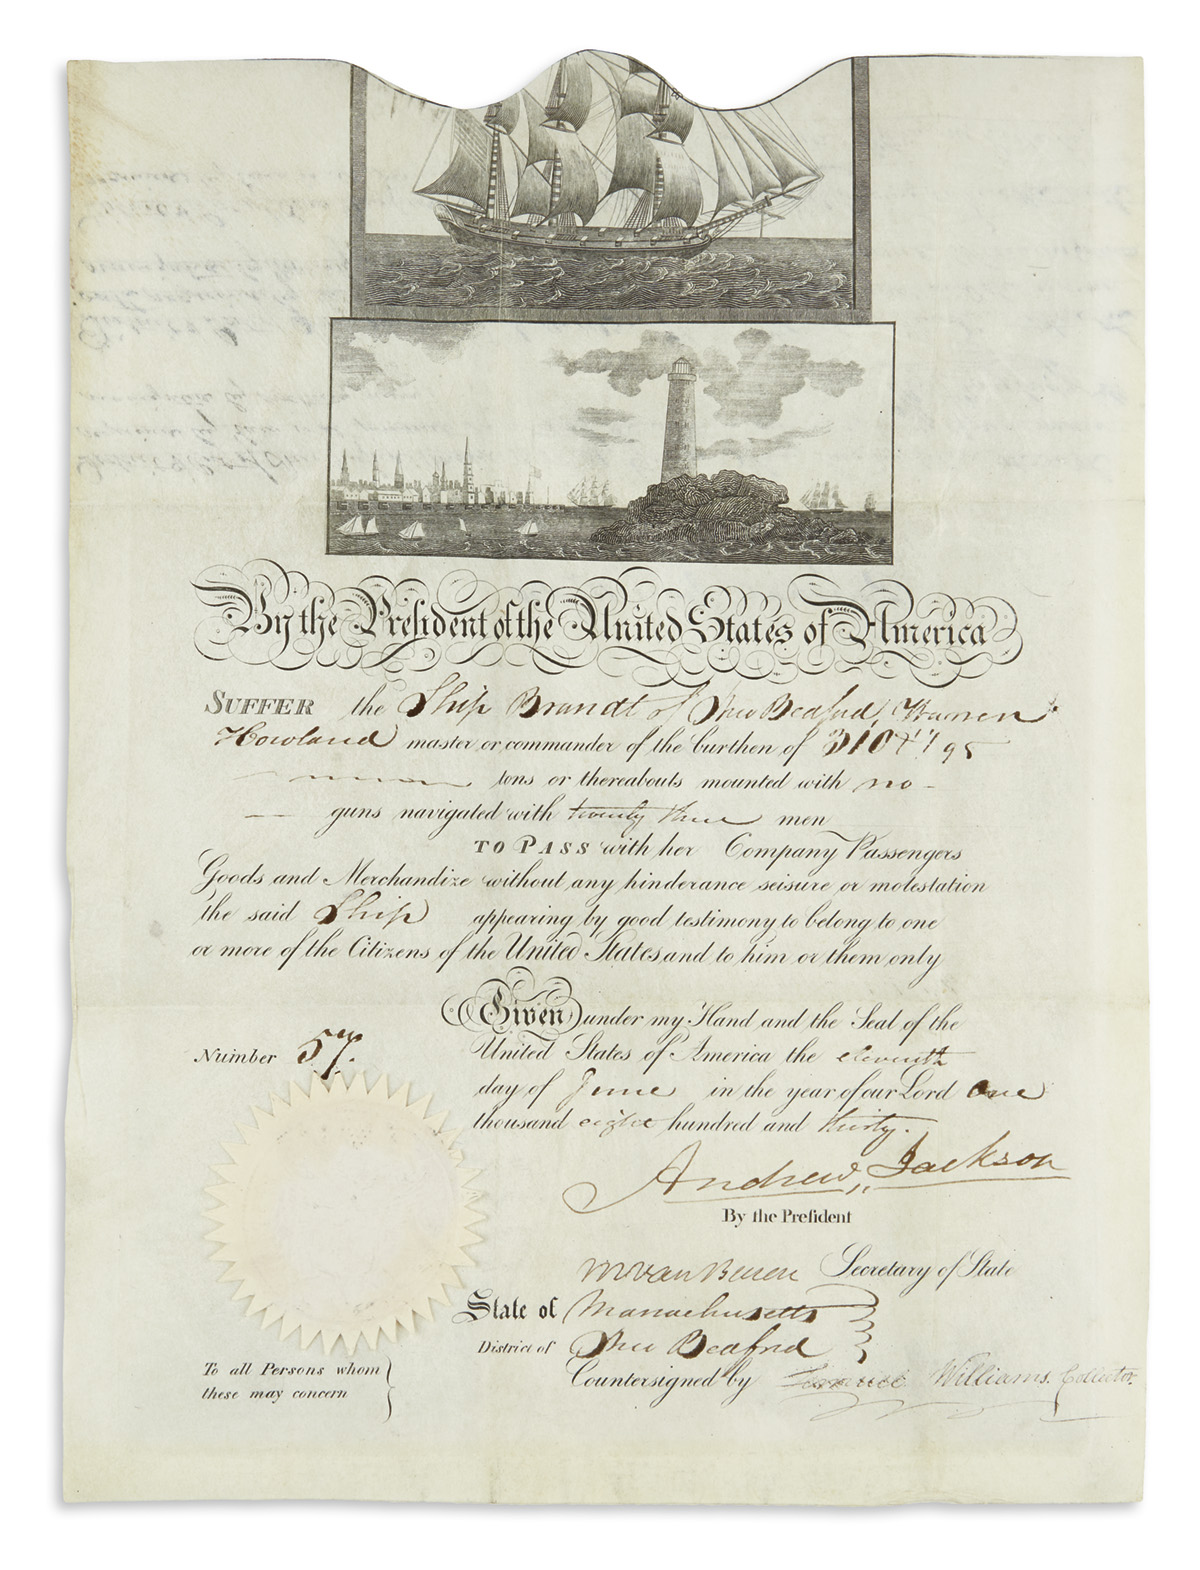 By the President of the United States of America
SUFFER the Ship Brandt of New Bedford, Warren
Howland master or commander of the burthen of 310 47/95
tons or thereabouts mounted with no
guns navigated with twenty three men
TO PASS with her Company Passengers
Goods and Merchandize without any hinderance seisure or molestation
the said Ship appearing by good testimony to belong to one
or more of the Citizens of the United States and to him or them only
Given under my Hand and the Seal of the
Number 57.
United States of America the eleventh
day of June in the year of our Lord One
thousand eight hundred and thirty.
Andrew Jackson
By the President
M Van Buren Secretary of State
State of Massachusetts
District of New Bedford
To all Persons whom
these may concern
Countersigned by Williams. Collector.